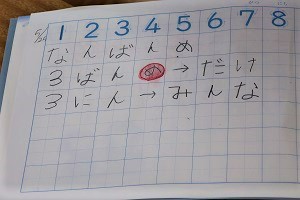 5/24 1 2 3 4 5 6 7 8
なんばんめ
3ばんめ→だけ
3にん→みんな